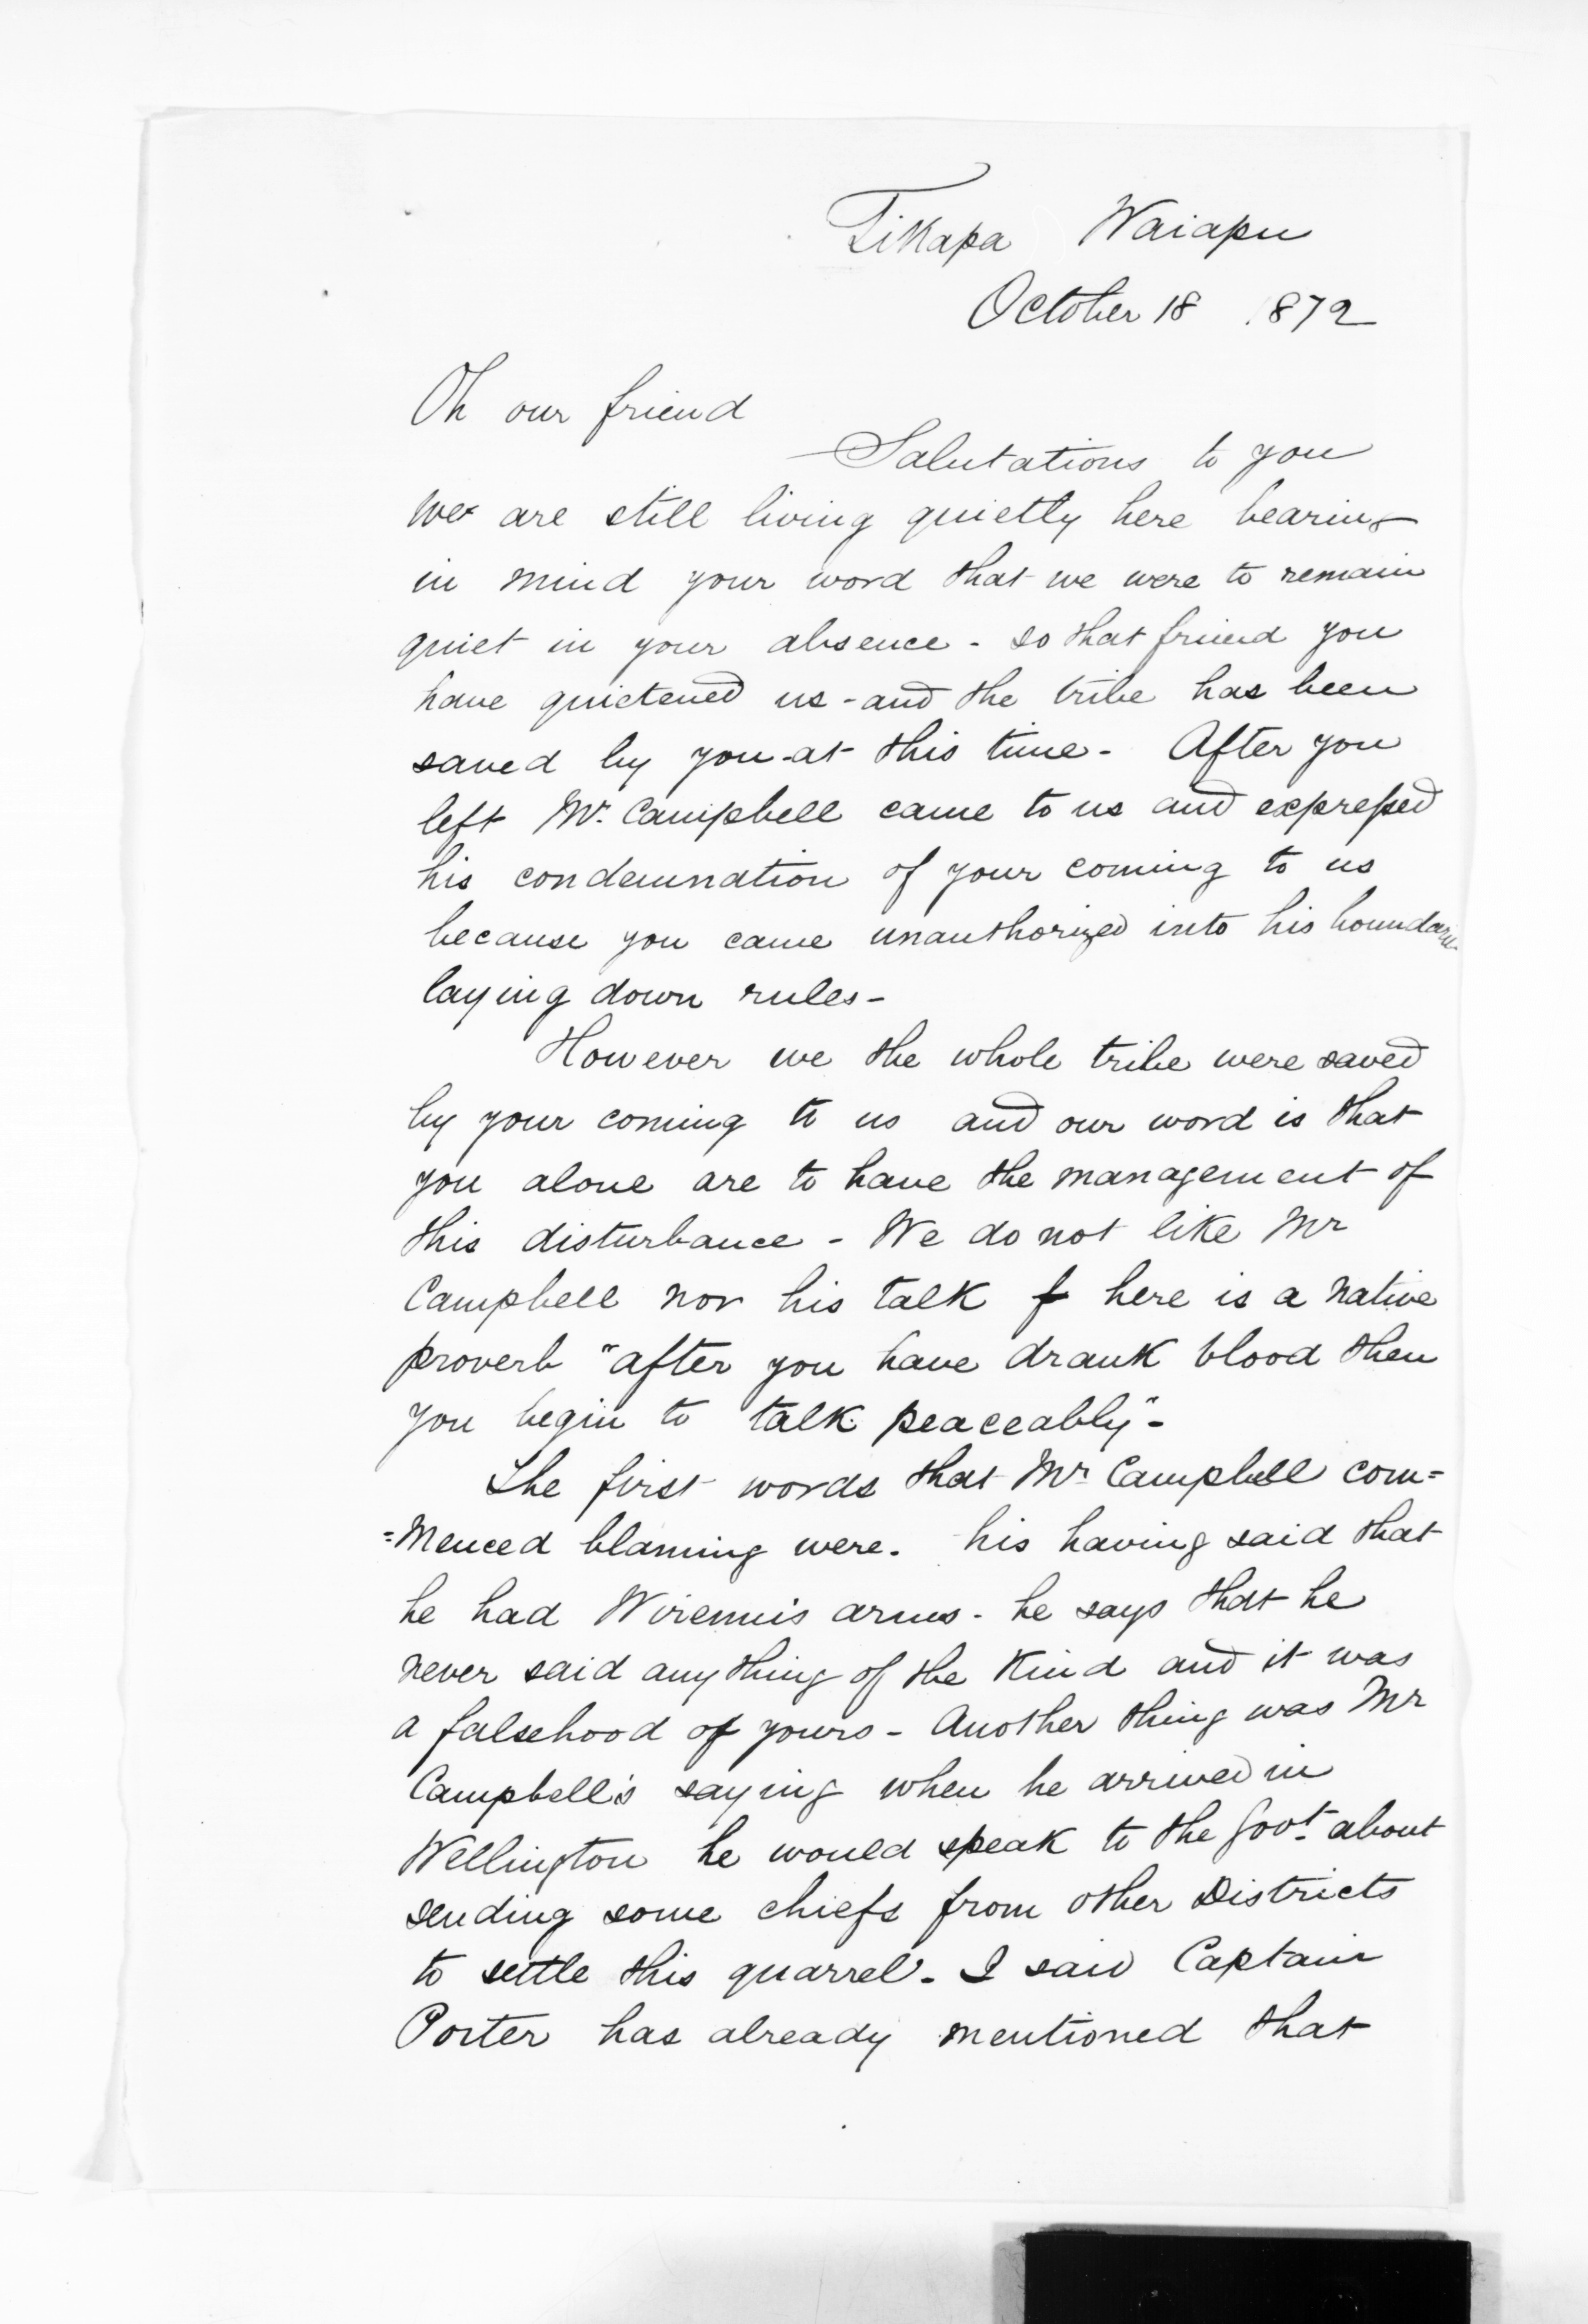 Tikapa Waiapu
October 18 1872
Oh our friend
Salutations to you
We are still living quietly here bearing
in mind your word that we were to remain
quiet in your absence - so that friend you
have quietened us - and the tribe has been
saved by you - at this time - After you
left Mr. Campbell came to us and expressed
his condemnation of your coming to us
because you came unauthorized into his boundaries
laying down rules -
However we the whole tribe were saved
by your coming to us and our word is that
you alone are to have the management of
this disturbance - We do not like Mr
Campbell nor his talk here is a native
proverb "after you have drank blood then
you begin to talk peaceably" -
The first words that Mr Campbell com=
=menced blaming were. his having said that
he had Wiremu's arms - he says that he
never said anything of the kind and it was
a falsehood of yours - Another thing was Mr
Campbell's saying when he arrived in
Wellington he would speak to the Govt. about
sending some chiefs from other Districts
to settle this quarrel. I said Captain
Porter has already mentioned that